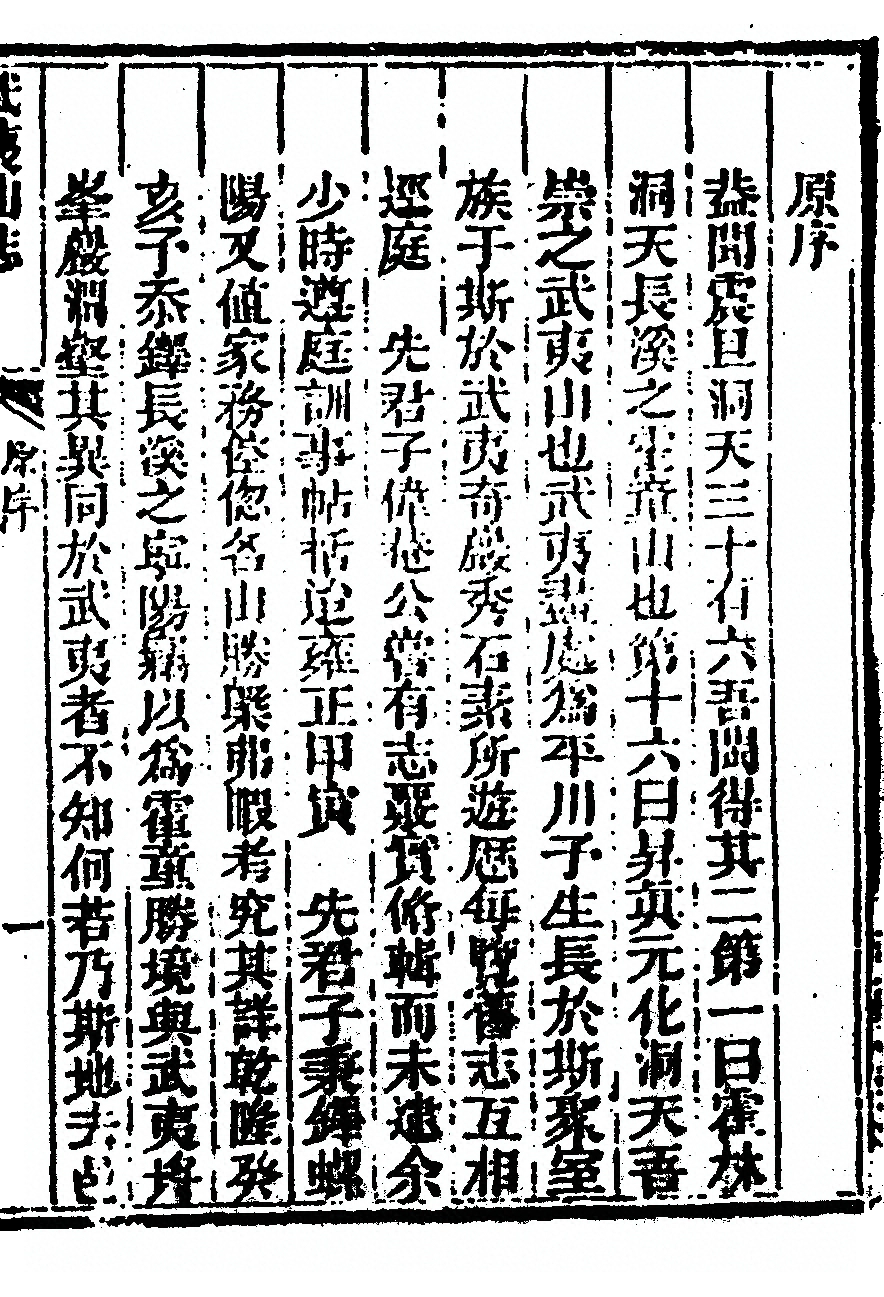 原序
葢聞震旦洞天三十有六吾閩得其二第一曰霍林
洞天長溪之霍童山也第十六曰昇眞元化洞天吾
崇之武夷山也武夷盡處為平川予生長於斯聚室
族于斯於武夷奇巖秀石素所遊歷每覽舊志互相
逕庭　先君子偉菴公嘗有志蒐實脩輯而未逮余
少時遵庭訓事帖括迨雍正甲寅　先君子秉鐸螺
陽又値家務倥偬名山勝槩弗暇考究其詳乾隆癸
亥予忝鐸長溪之寧陽竊以為霍童勝境與武夷埒
峯巖洞壑其異同於武夷者不知何若乃斯地去邑
武夷山志
原序
一